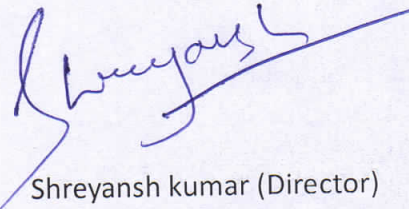 Shreyansh
Shreyansh kumar (Director)